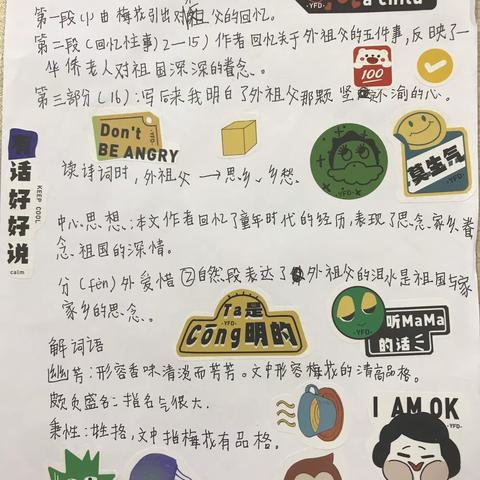 a child
-YFD-
第一段(1)由梅花引出对外祖父的回忆。
第二段(回忆往事)2—15)作者回忆关于外祖父的五件事,反映了一
华侨老人对祖国深深的眷念。
100
第三部分(16):写后来我明白了外祖父那颗坚不渝的心。
Don't
-YFD-
BE ANGRY
话好好说
KEEP COOL
calm
读诗词时,外祖父→思乡、乡愁
莫生气
-YFD-
中心思想:本文作者回忆了童年时代的经历,表现了思念家乡,眷
念祖国的深情。
分(fèn)外爱惜②自然段表达了外祖父的泪水是祖国与家
家乡的思念。
Ta是
-YFD-
Cōng明的
-YFD-
听MaMa
的话
解词语
幽芳:形容香味清淡而芳芳。文中形容梅花的清高品格。
颇负盛名:指名气很大.
秉性:性格,文中指梅花有品格。
-YFD-
I AM OK
-YFD-